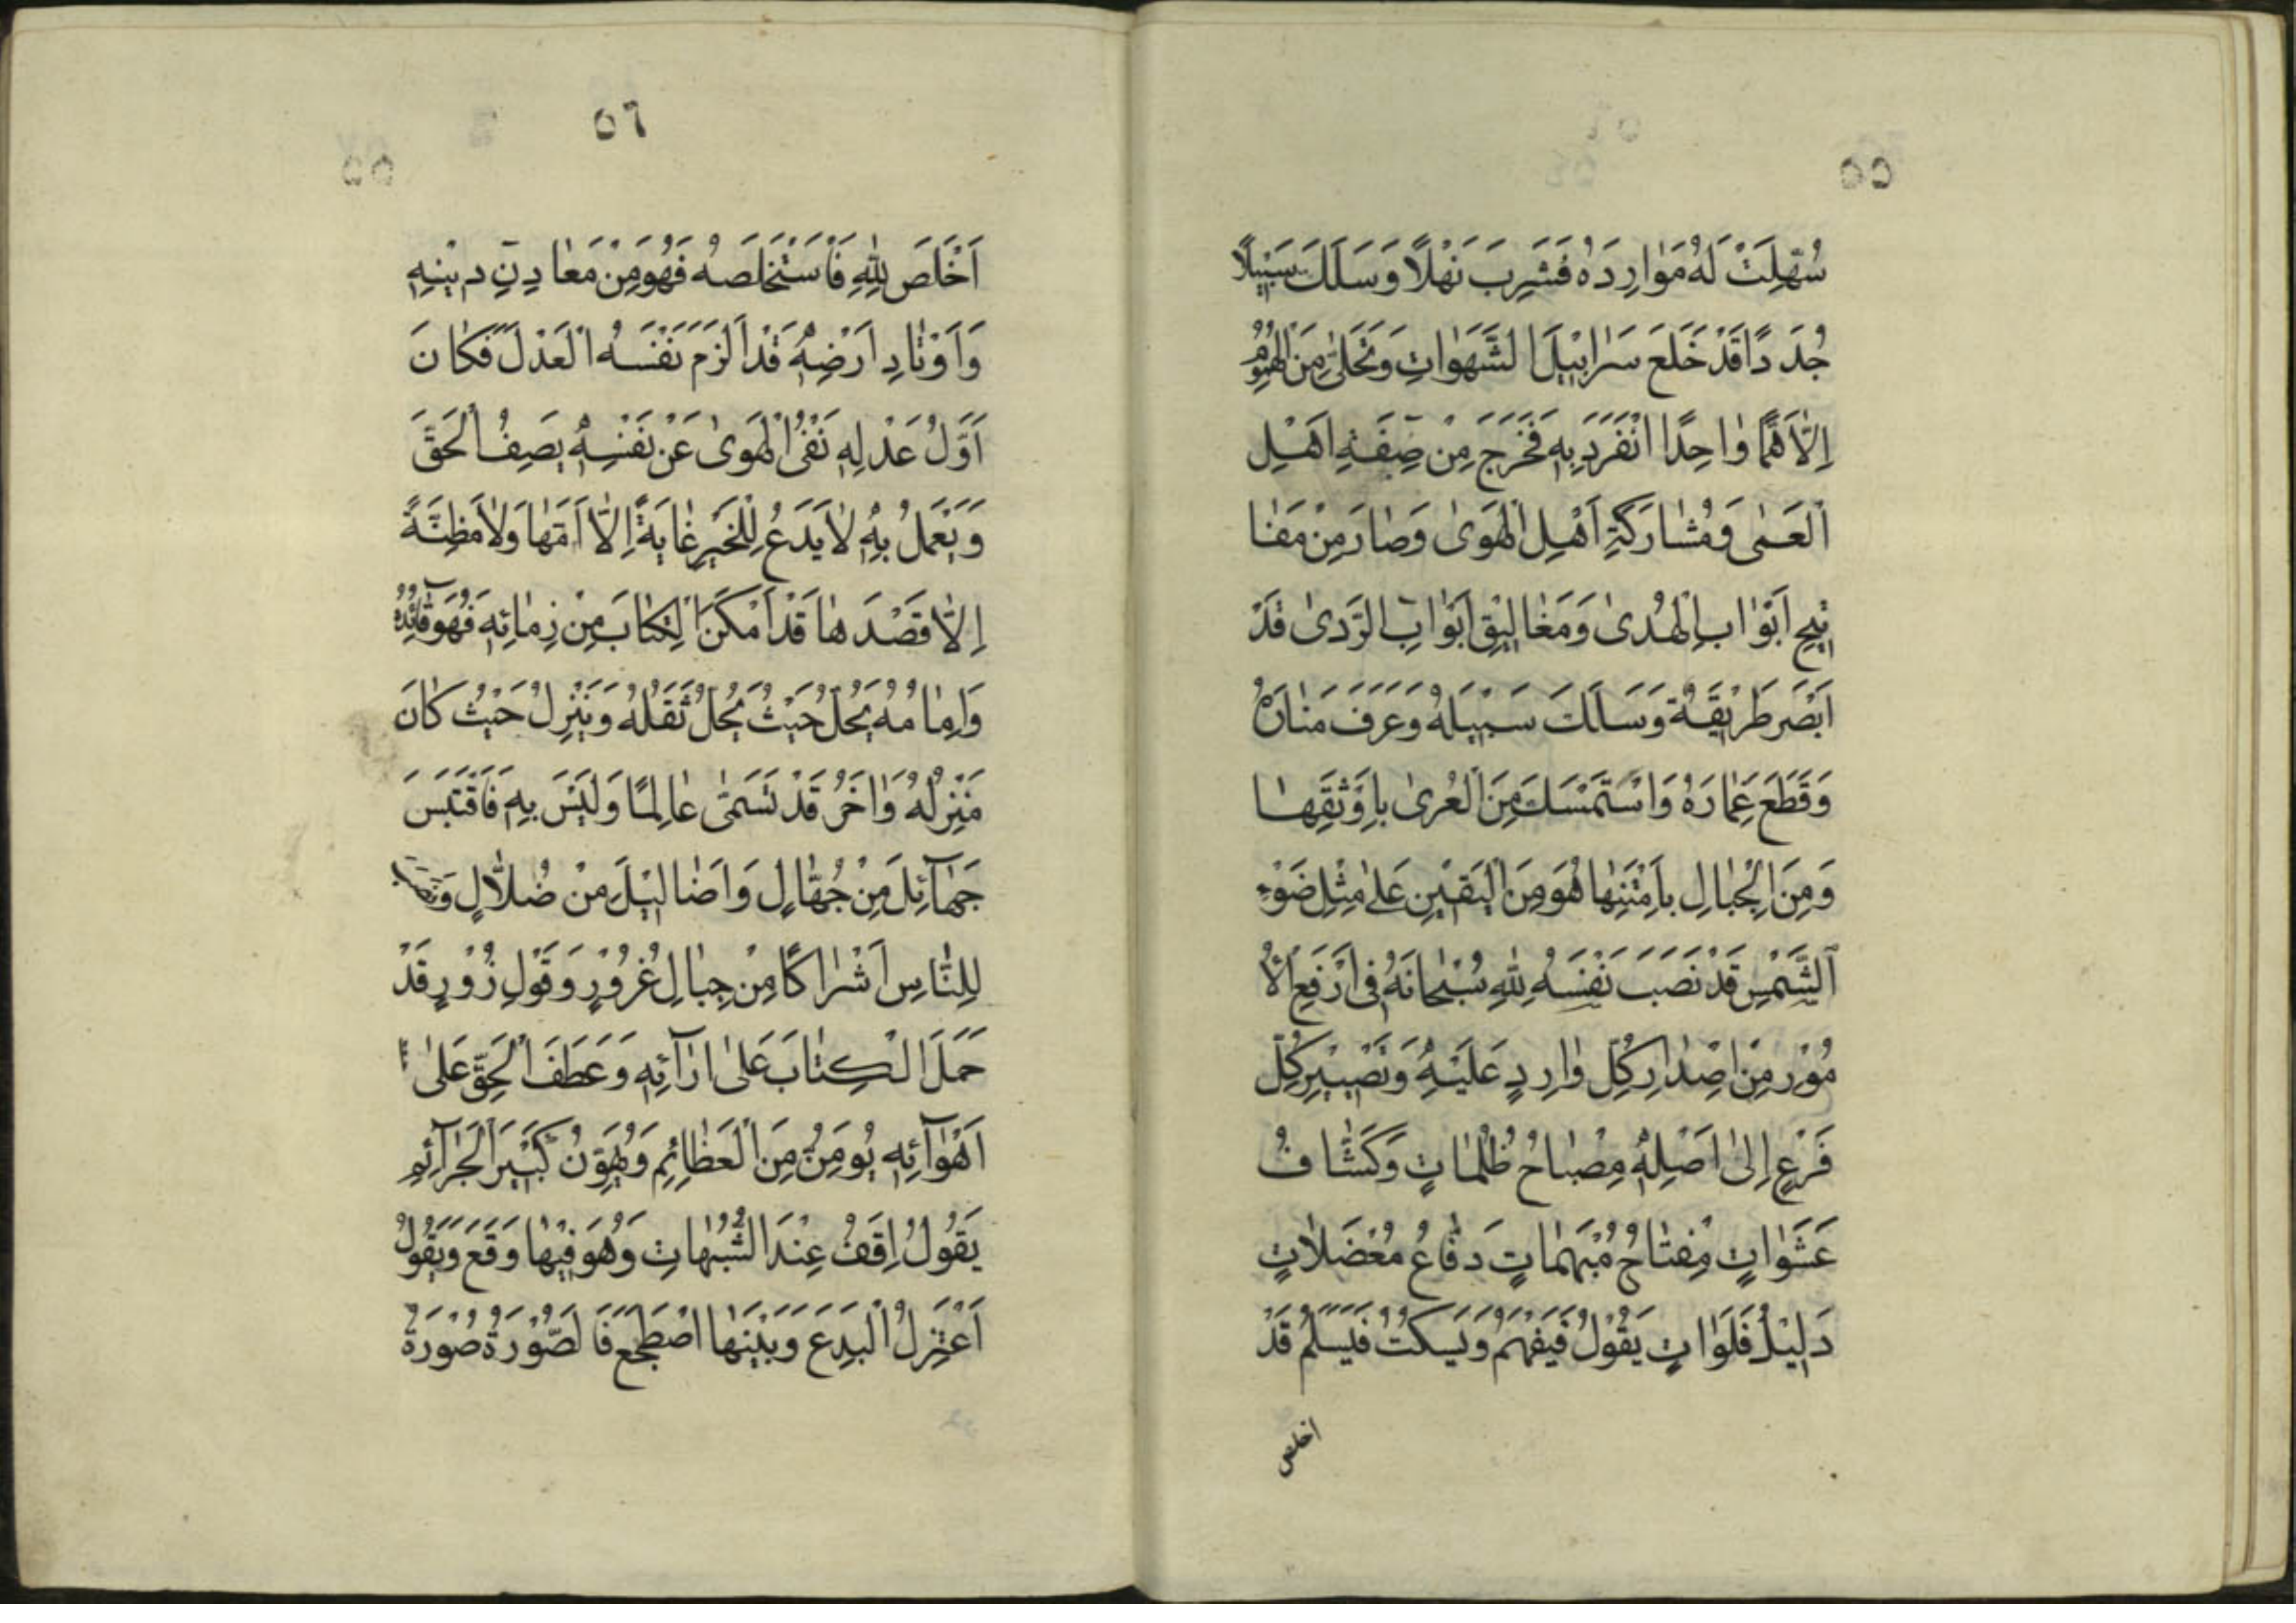 ٥٥
سُهِّلَتْ لَهُ مَوَارِدَهُ فَشَرِبَ نَهْلًا وَسَلَكَ سَبِيلًا
جُدَدًا قَدْ خَلَعَ سَرَابِيْلَ الشَّهَوَاتِ وَتَخَلّٰى مِنَ الْهُمُومِ
اِلَّا هَمًّا وٰاحِدًا انْفَرَدَ بِهِ فَخَرَجَ مِنْ صِفَةِ اَهْلِ
الْعَمٰى وَمُشٰارَكَةِ اَهْلِ الْهَوىٰ وَصٰارَ مِنْ مَفٰا
تِيحِ اَبْوٰابِ الْهُدىٰ وَمَغٰالِيْقِ اَبْوٰابِ الرَّدىٰ قَدْ
اَبْصَرَ طَرِيْقَهُ وَسَلَكَ سَبِيلَهُ وَعَرَفَ مَنٰارَهُ
وَقَطَعَ غِمٰارَهُ وَاسْتَمْسَكَ مِنَ الْعُرىٰ بِاَوْثَقِهٰا
وَمِنَ الْحِبٰالِ بِاَمْتَنِهٰا فَهُوَ مِنَ الْيَقِيْنِ عَلىٰ مِثْلِ ضَوْءِ
الشَّمْسِ قَدْ نَصَبَ نَفْسَهُ لِلّٰهِ سُبْحٰانَهُ فِى اَرْفَعِ الْاُ
مُوْرِ مِنْ اِصْدٰارِ كُلِّ وٰارِدٍ عَلَيْهِ وَتَصْيِيْرِ كُلِّ
فَرْعٍ اِلىٰ اَصْلِهِ مِصْبٰاحُ ظُلُمٰاتٍ وَكَشّٰافُ
عَشَوٰاتٍ مِفْتٰاحُ مُبْهَمٰاتٍ دَفّٰاعُ مُعْضَلٰاتٍ
دَلِيْلُ فَلَوٰاتٍ يَقُوْلُ فَيُفْهِمُ وَيَسْكُتُ فَيَسْلَمُ قَدْ
اخلص
٥٦
اَخْلَصَ لِلّٰهِ فَاسْتَخْلَصَهُ فَهُوَ مِنْ مَعٰادِنِ دِيْنِهِ
وَاَوْتٰادِ اَرْضِهِ قَدْ اَلْزَمَ نَفْسَهُ الْعَدْلَ فَكٰانَ
اَوَّلُ عَدْلِهِ نَفْىُ الْهَوىٰ عَنْ نَفْسِهِ يَصِفُ الْحَقَّ
وَيَعْمَلُ بِهِ لٰا يَدَعُ لِلْخَيْرِ غٰايَةً اِلّٰا اَمَّهٰا وَلٰا مَظِنَّةً
اِلّٰا قَصَدَهٰا قَدْ اَمْكَنَ الْكِتٰابَ مِنْ زِمٰامِهِ فَهُوَ قٰائِدُهُ
وَاِمٰامُهُ يَحُلُّ حَيْثُ يَحُلُّ ثَقَلُهُ وَيَنْزِلُ حَيْثُ كٰانَ
مَنْزِلُهُ وَاٰخَرُ قَدْ تَسَمّٰى عٰالِمًا وَلَيْسَ بِهِ فَاقْتَبَسَ
جَهٰآئِلَ مِنْ جُهّٰالٍ وَاَضٰالِيْلَ مِنْ ضُلّٰالٍ وَنَصَبَ
لِلنّٰاسِ اَشْرٰاكًا مِنْ حِبٰالِ غُرُوْرٍ وَقَوْلِ زُوْرٍ قَدْ
حَمَلَ الْكِتٰابَ عَلىٰ اٰرٰآئِهِ وَعَطَفَ الْحَقَّ عَلىٰ
اَهْوٰآئِهِ يُؤْمِنُ مِنَ الْعَظٰائِمِ وَيُهَوِّنُ كَبِيْرَ الْجَرٰآئِمِ
يَقُوْلُ اَقِفُ عِنْدَ الشُّبُهٰاتِ وَهُوَ فِيْهٰا وَقَعَ وَيَقُوْلُ
اَعْتَزِلُ الْبِدَعَ وَبَيْنَهٰا اضْطَجَعَ فَالصُّوْرَةُ صُوْرَةُ